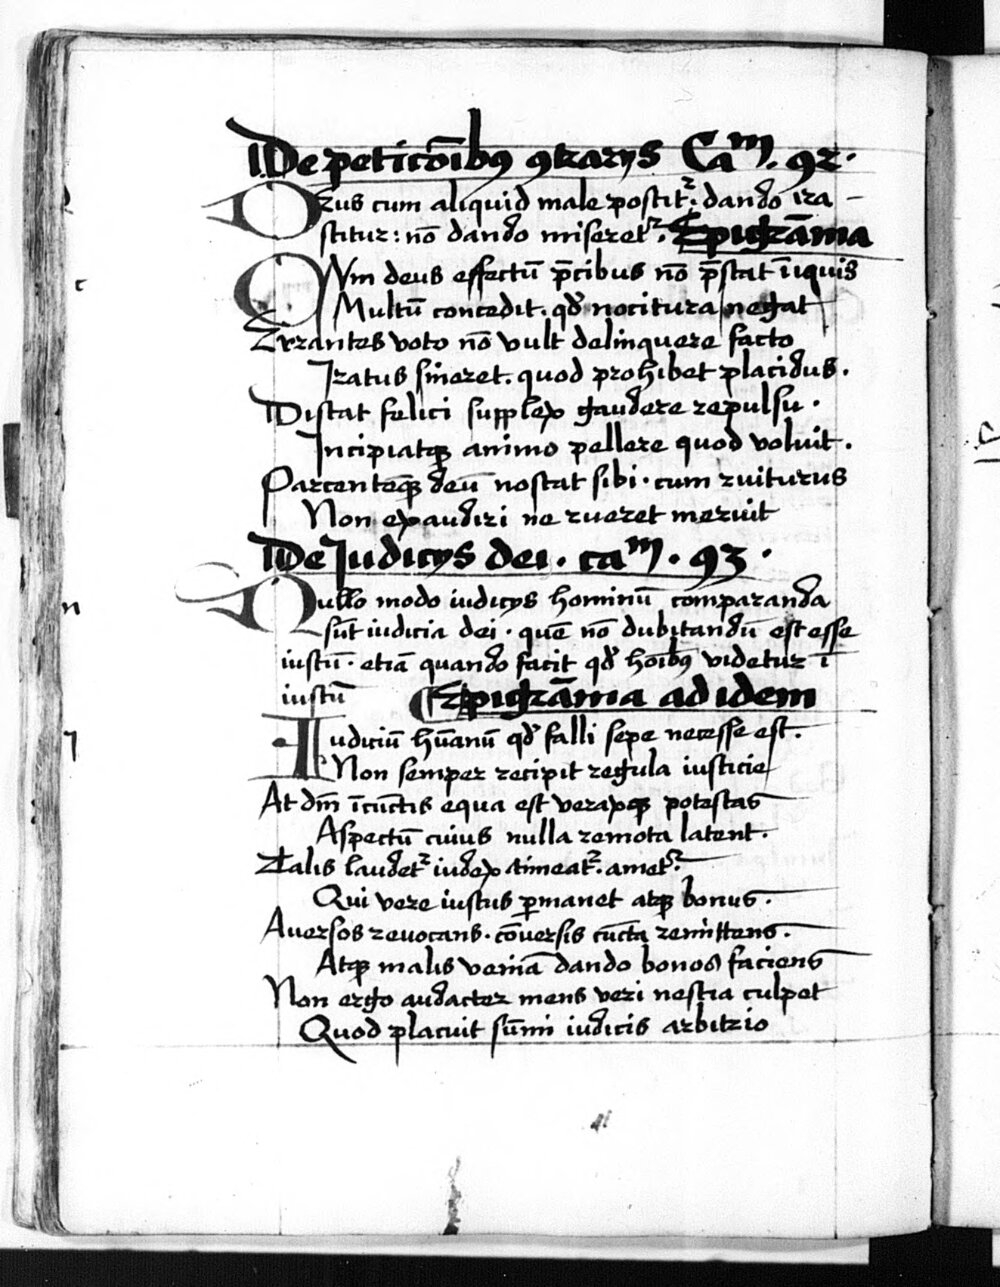 De peticōibꝰ ꝯtrarijs Caᵐ. 92.
Deus cum aliquid male poscit᷑: dando ira
scitur: nō dando miseret᷑. Epigrāma
QVm deus effectū p̄cibus nō p̄stat īiquis
Multū concedit. qd̓ nocitura negat
Errantes voto nō vult delinquere facto
Iratus sineret. quod prohibet placidus.
Discat felici supplex gaudere repulsu.
Incipiatqꝫ animo pellere quod voluit.
Parcentēqꝫ deū noscat sibi. cum ruiturus
Non exaudiri ne rueret meruit
De Judicijs dei. caᵐ. 93.
Nullo modo iudicijs hominū comparanda
sūt iudicia dei. quē nō dubitandū est esse
iustū. etiā quando facit qd̓ hoībꝰ videtur ī
iustū Epigrāma ad idem
Iudiciū hūanū qd̓ falli sepe necesse est.
Non semper recipit regula iusticie
At dn̄i īcūctis equa est veraxqꝫ potestas
Aspectū cuius nulla remota latent.
Talis laudet᷑ iudex timeat᷑. amet᷑.
Qui vere iustus ꝑmanet atqꝫ bonus.
Auersos reuocans. cōuersis cūcta remittens.
Atqꝫ malis veniā dando bonos faciens
Non ergo audacter mens veri nescia culpet
Quod placuit sūmi iudicis arbitrio